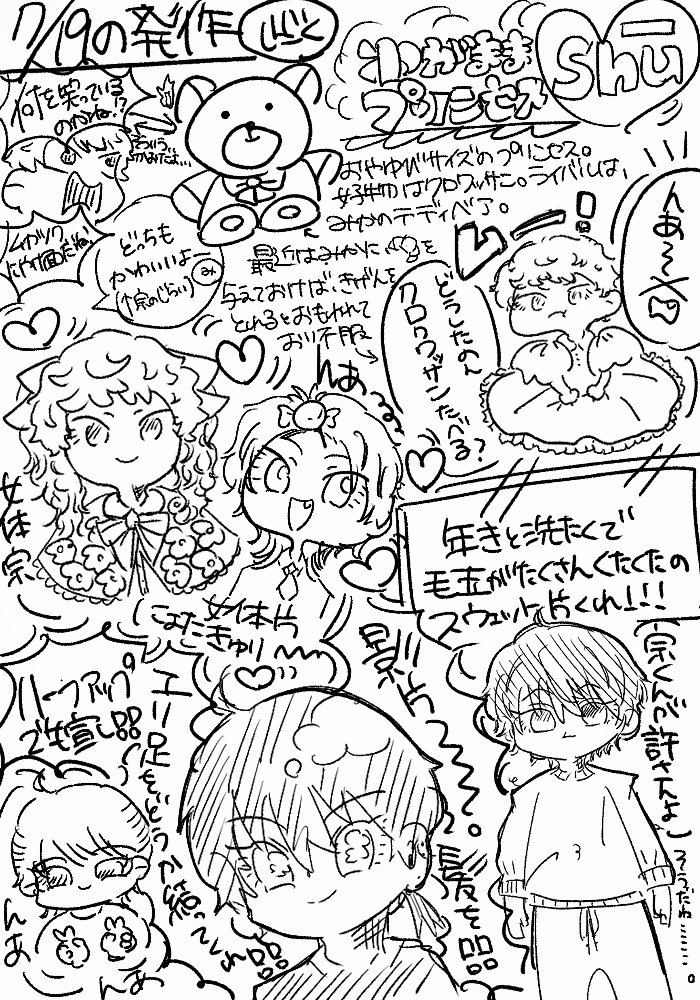 7/19の発作
わがまま
プリンセス
Shū
何を笑っている
のかね!?
おやゆびサイズのプリンセス。
好物はクロワッサン。ライバルは、
みかのテディベア。
ムカツク
どっちも
かわいいよー
み
最近はみかに
を
与えておけば、きげんを
とれるとおもわれて
おり不服
んあ〜
どうしたのん
クロワッサンたべる?
んぁ
女体宗
女体片
年きと洗たくで
毛玉がたくさんくたくたの
スウェット片くれ!!!
「宗くんが許さんよ」
そうだね……
ハーフアップ
エリ足をどうか結ってくれ
影片〜。
髪を
んあ
んあ